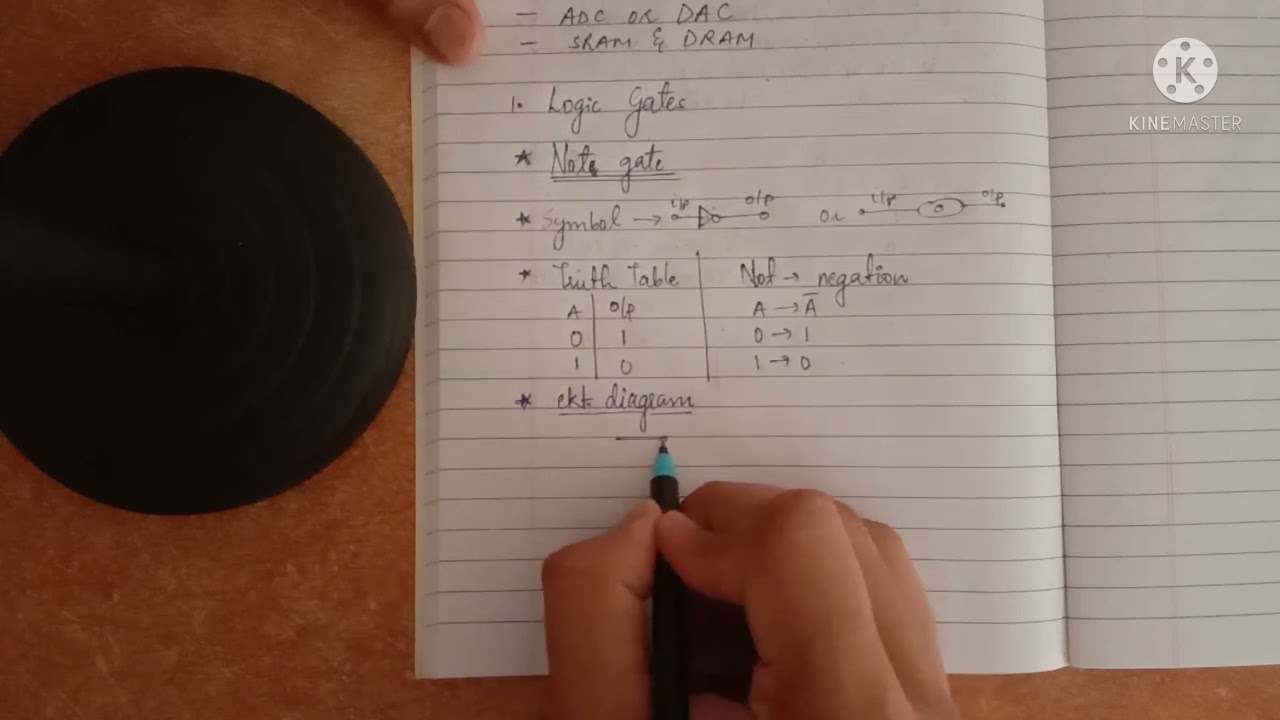 - ADC or DAC
- SRAM & DRAM
K
KINEMASTER
1. Logic Gates
* Note gate
* Symbol → i/p o/p Or i/p o/p
* Truth Table Not → negation
A o/p A → Ā
0 1 0 → 1
1 0 1 → 0
* ckt diagram